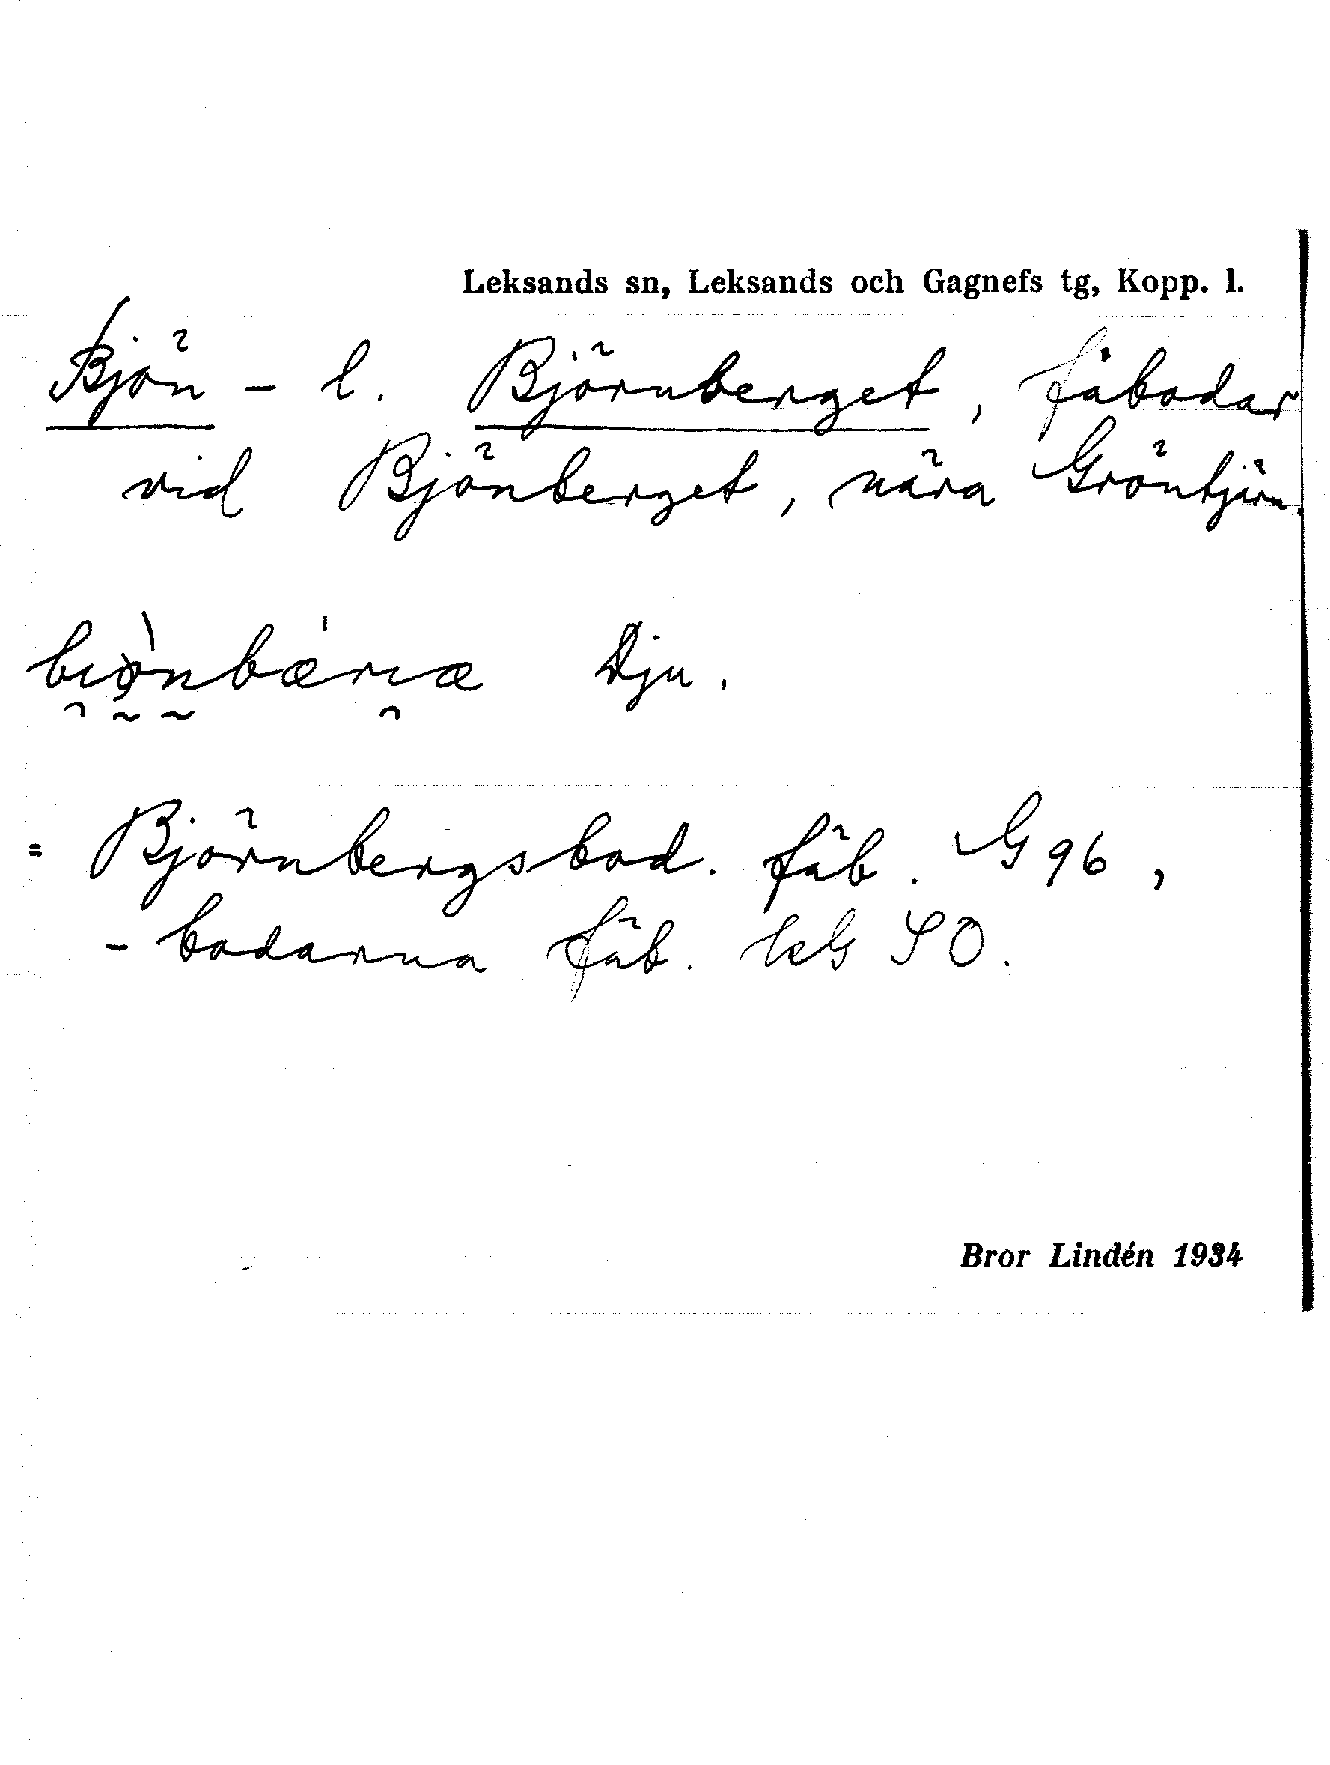 Leksands sn, Leksands och Gagnefs tg, Kopp. l.
Björn- l. Björnberget, fäbodar
vid Björnberget, nära Gröntjärn.
Dju.
= Björnbergsbod. fäb. G 96,
-bodarna fäb. SO.
Bror Lindén 1934